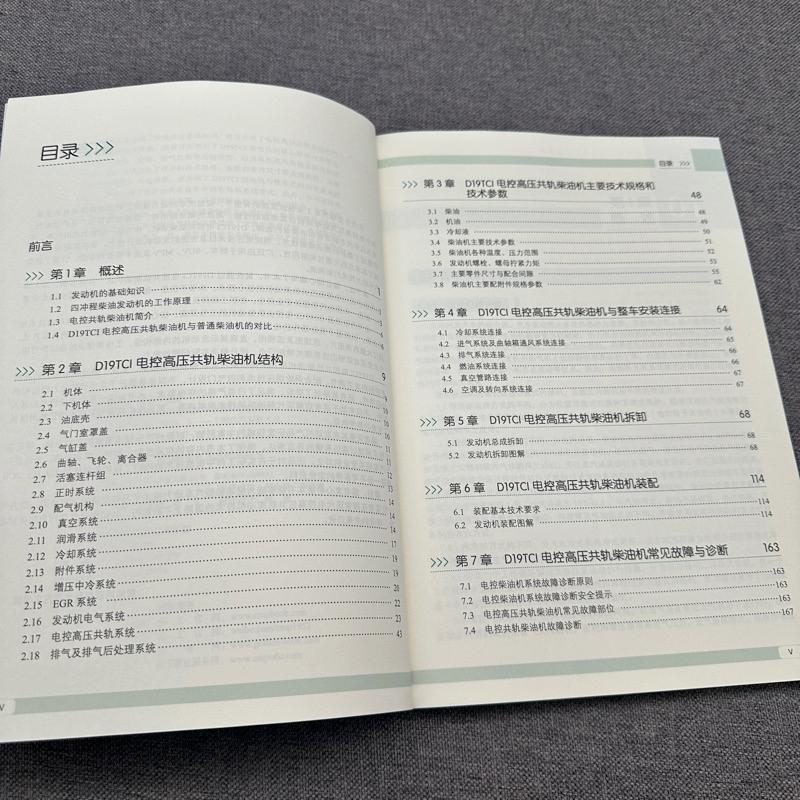 目录 >>>
前言
>>> 第1章 概述 1
1.1 发动机的基础知识
1.2 四冲程柴油发动机的工作原理
1.3 电控共轨柴油机简介
1.4 D19TCI 电控高压共轨柴油机与普通柴油机的对比 6
>>> 第2章 D19TCI 电控高压共轨柴油机结构 9
2.1 机体 9
2.2 下机体
2.3 油底壳 10
2.4 气门室罩盖 10
2.5 气缸盖
2.6 曲轴、飞轮、离合器 11
2.7 活塞连杆组
2.8 正时系统
2.9 配气机构
2.10 真空系统 14
2.11 润滑系统 14
2.12 冷却系统 17
2.13 附件系统 19
2.14 增压中冷系统 19
2.15 EGR 系统 20
2.16 发动机电气系统 22
2.17 电控高压共轨系统 23
2.18 排气及排气后处理系统 43
V
目录 >>>
>>> 第3章 D19TCI 电控高压共轨柴油机主要技术规格和
技术参数 48
3.1 柴油 48
3.2 机油 49
3.3 冷却液 50
3.4 柴油机主要技术参数 51
3.5 柴油机各种温度、压力范围 52
3.6 发动机螺栓、螺母拧紧力矩 53
3.7 主要零件尺寸与配合间隙 55
3.8 柴油机主要配附件规格参数 62
>>> 第4章 D19TCI 电控高压共轨柴油机与整车安装连接 64
4.1 冷却系统连接 64
4.2 进气系统及曲轴箱通风系统连接 65
4.3 排气系统连接 66
4.4 燃油系统连接 66
4.5 真空管路连接 67
4.6 空调及转向系统连接 67
>>> 第5章 D19TCI 电控高压共轨柴油机拆卸 68
5.1 发动机总成拆卸 68
5.2 发动机拆卸图解 68
>>> 第6章 D19TCI 电控高压共轨柴油机装配 114
6.1 装配基本技术要求 114
6.2 发动机装配图解 114
>>> 第7章 D19TCI 电控高压共轨柴油机常见故障与诊断 163
7.1 电控柴油机系统故障诊断原则 163
7.2 电控柴油机系统故障诊断安全提示 163
7.3 电控高压共轨柴油机常见故障部位 163
7.4 电控共轨柴油机故障诊断 167
V